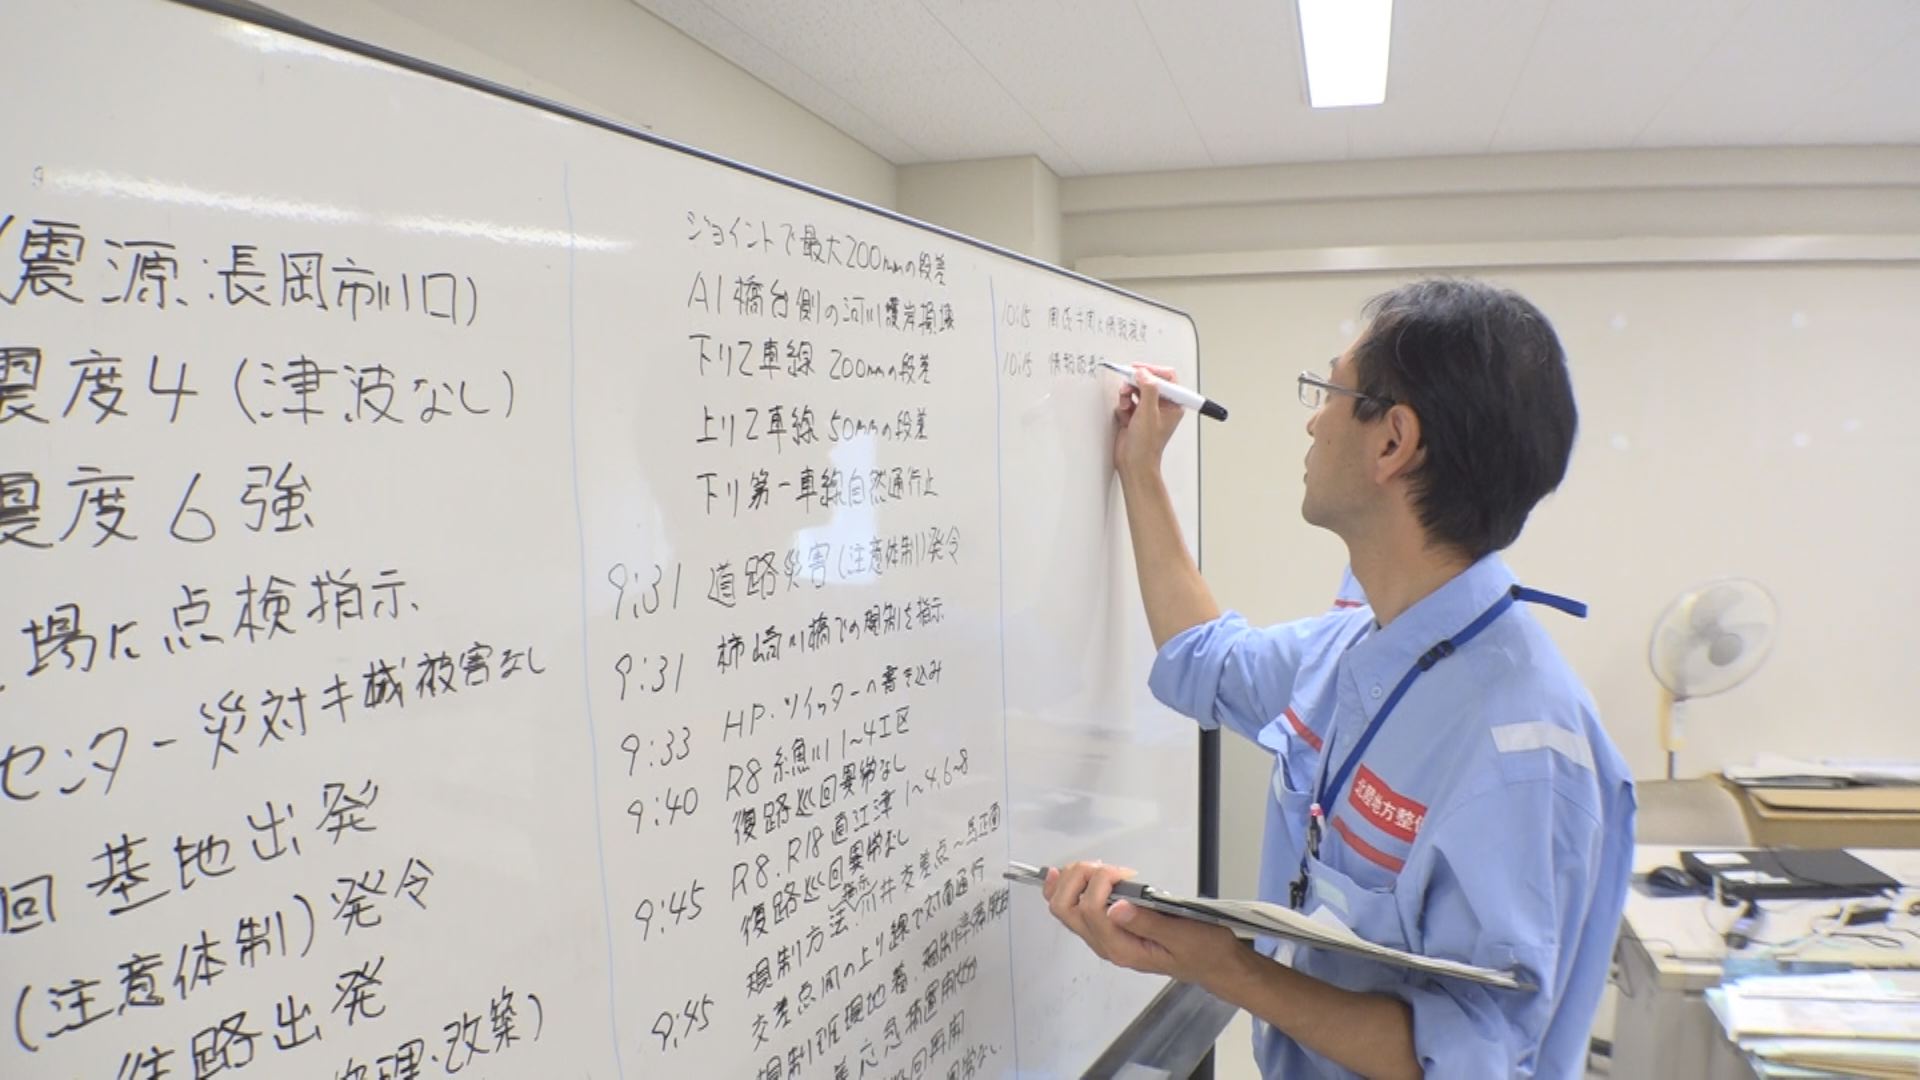 (震源:長岡市川口)
震度4 (津波なし)
震度6強
場に点検指示
センター災対キ械被害なし
回 基地出発
(注意体制)発令
往路出発
改築)
ジョイントで最大200mmの段差
A1橋台側の河川護岸損壊
下り2車線 200mmの段差
上り2車線 50mmの段差
下り第一車線自然通行止
9:31 道路災害(注意体制)発令
9:31 柿崎川橋での規制を指示
9:33 HP・ツイッターへ書き込み
9:40 R8 糸魚川 1~4工区
復路巡回異常なし
9:45 R8.R18 直江津 1~4,6~8
復路巡回異常なし
規制方法:
交差点間の上り線で対面通行
9:45 規制班現地着.規制準備開始
応急措置開始
10:15
10:15 情報板表示
北陸地方整備